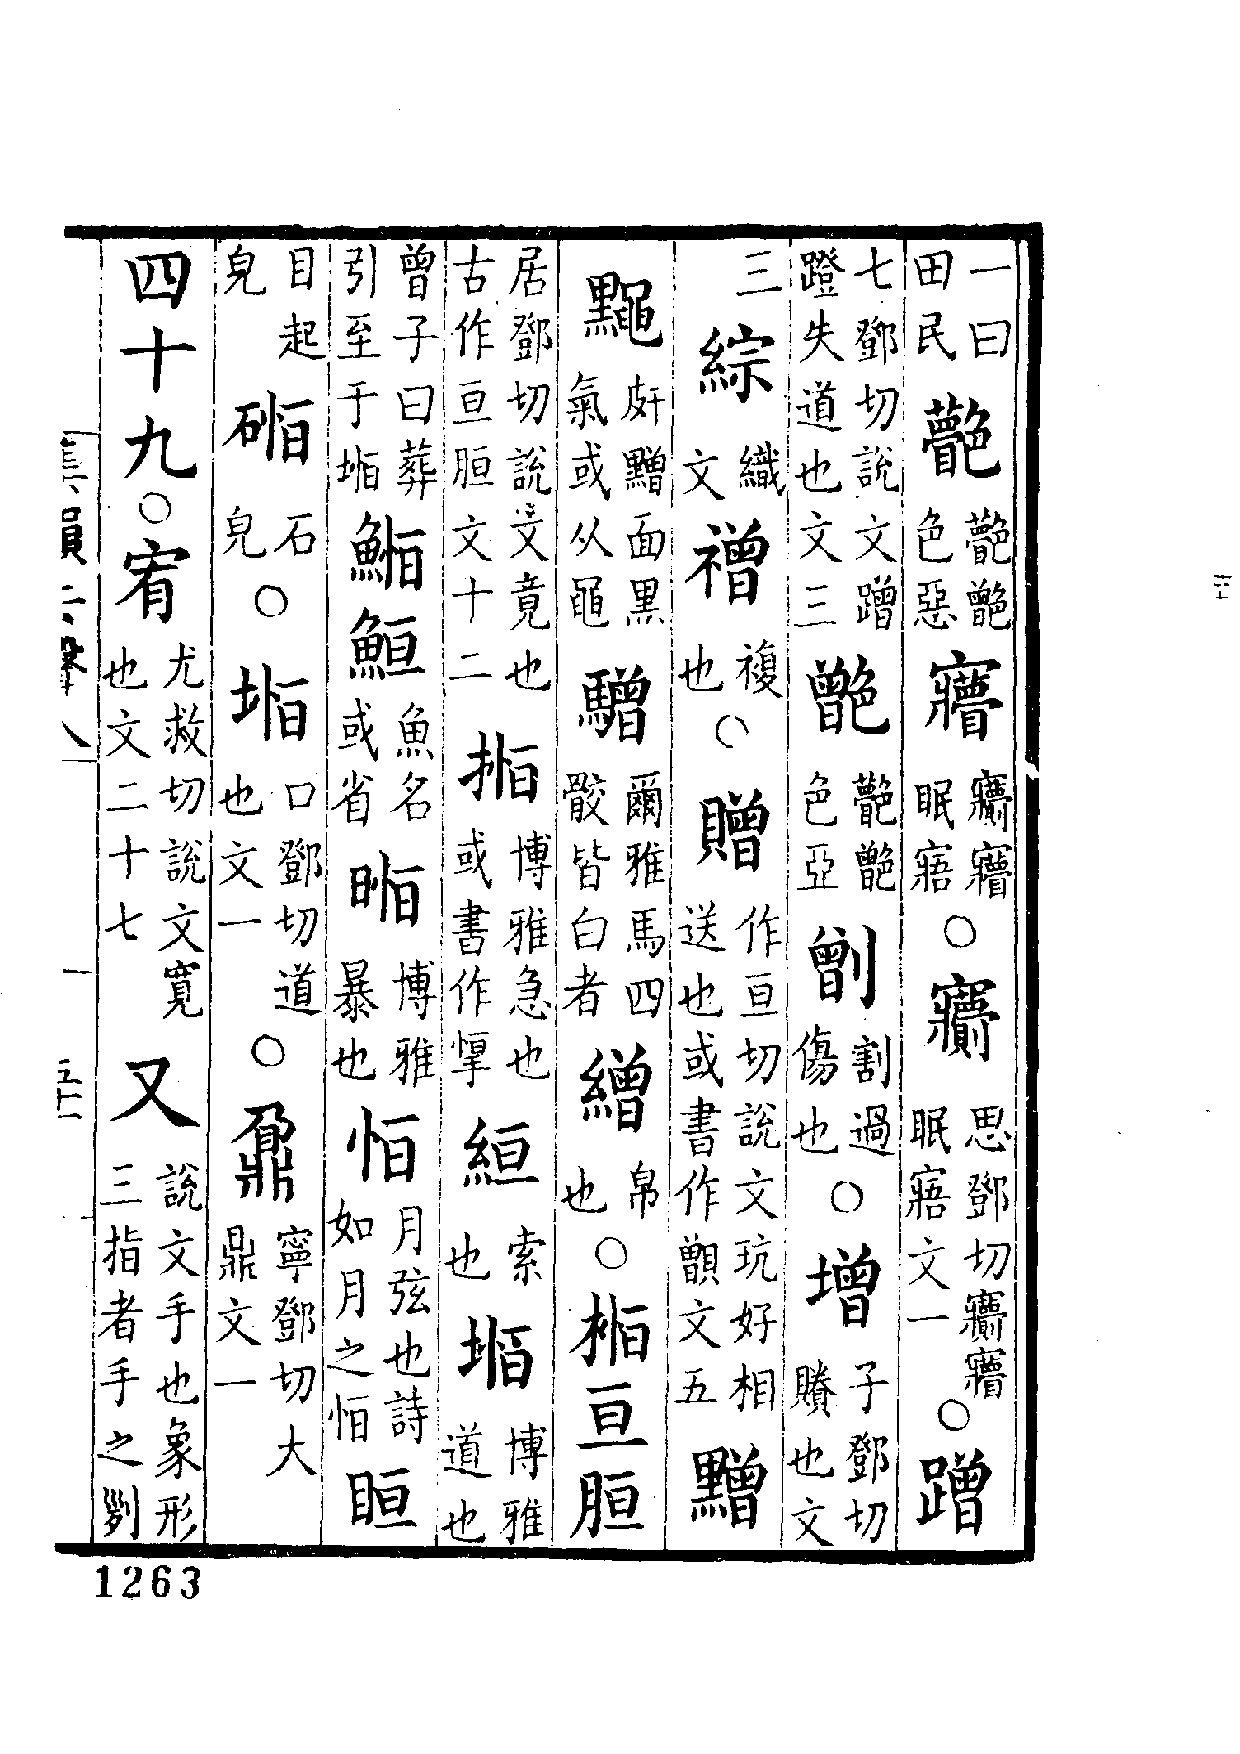 一曰田民䒏䒏䒌色惡㝱䆿㝱眠寤○䆿思鄧切䆿㝱眠寤文一○蹭
七鄧切說文蹭蹬失道也文三䒌䒏䒌色亞㔁割過傷也○增子鄧切賸也文
三綜織文䙢複也○贈作亙切說文玩好相送也或書作䰝文五䵴
䵴面黑氣或从黽驓爾雅馬四骹皆白者繒帛也○㮓亙𦛁
居鄧切說文竟也古作亘𦛁文十二搄博雅急也或書作㨘絚索也堩博雅道也
曾子曰葬引至于堩䱭䱍魚名或省㫥博雅暴也恆月弦也詩如月之恆𥆧
目起皃𥔂石皃○堩口鄧切道也文一○鼐寧鄧切大鼎文一
四十九○宥尤救切說文寬也文二十七又說文手也象形三指者手之列
集韻去聲八
五十一
1263